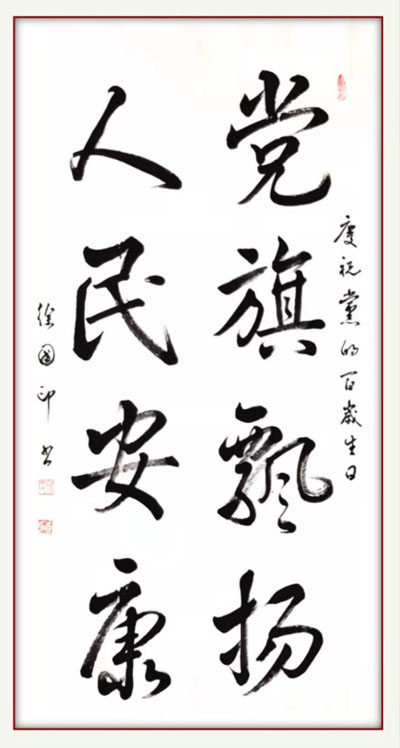 庆祝黨的百歲生日
党旗飘扬
人民安康
徐國印书